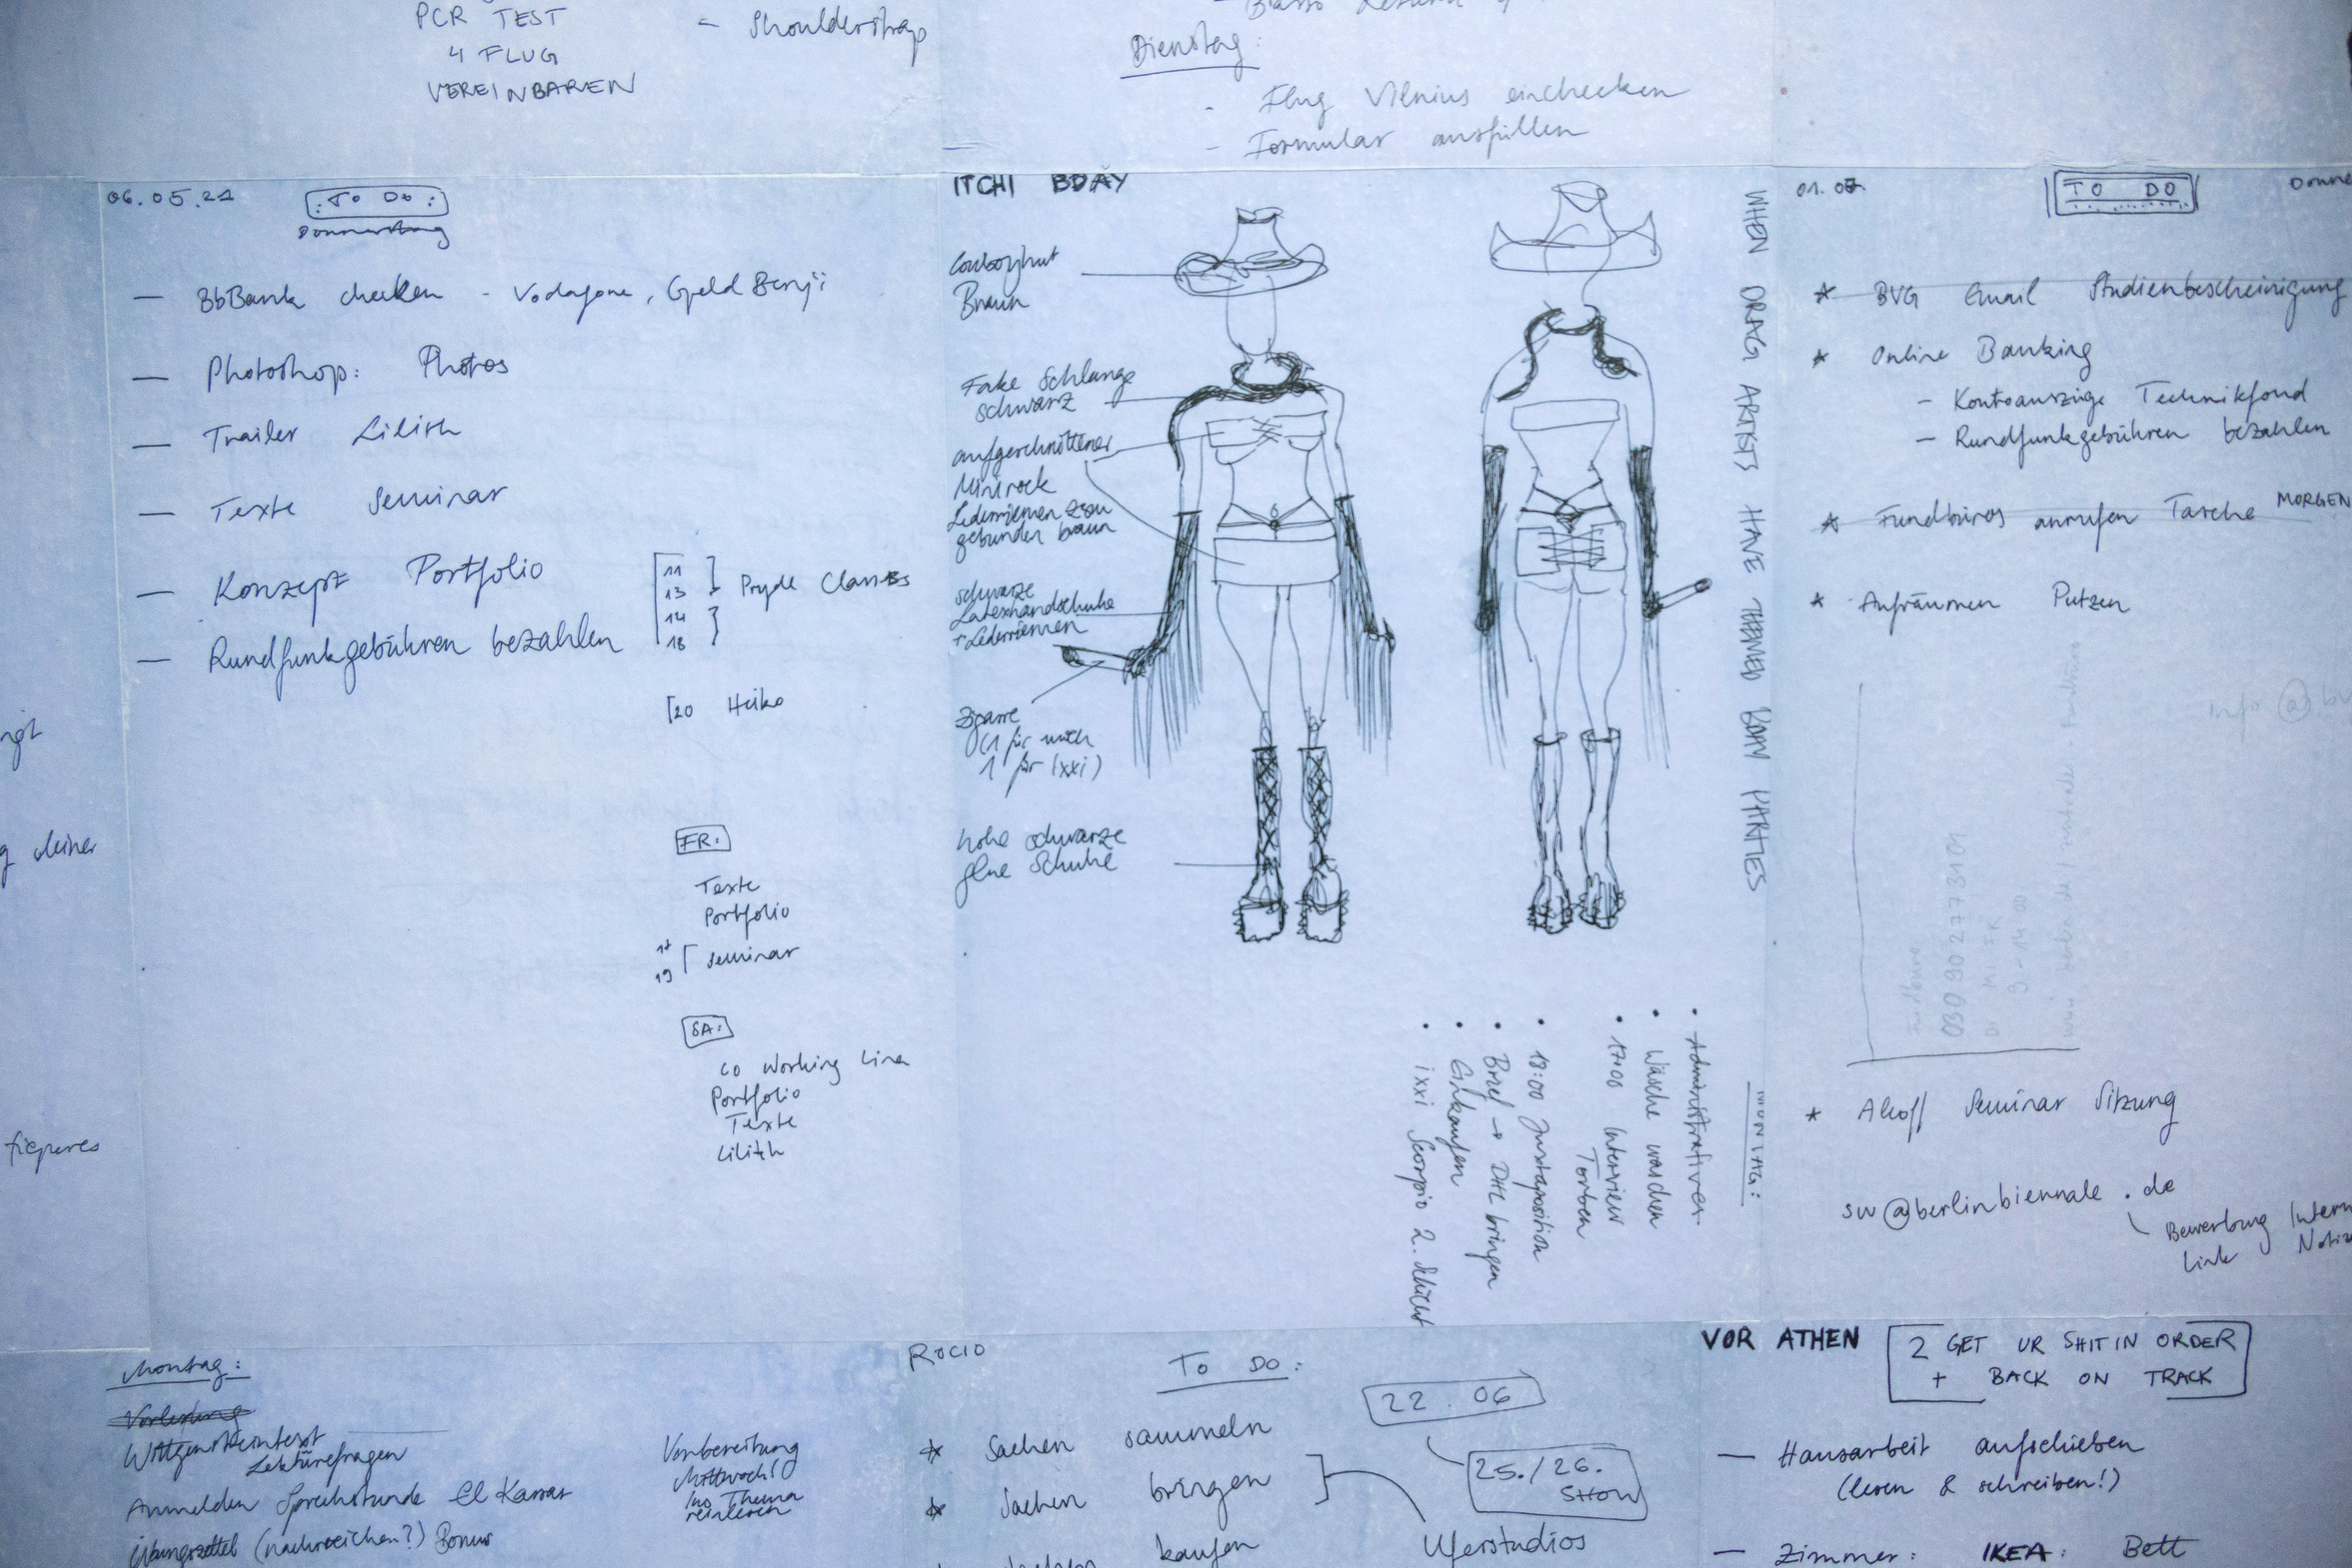 PCR TEST
4 FLUG
VEREINBAREN
- Shoulderstrap
Dienstag:
- Flug Vilnius einchecken
- Formular ausfüllen
06.05.21
: To Do :
Donnerstag
— BbBank checken - Vodafone, Geld Benji
— Photoshop: Photos
— Trailer Lilith
— Texte Seminar
— Konzept Portfolio
— Rundfunkgebühren bezahlen
11
13
Pryde Classes
14
18
[20 Heiko
FR:
Texte
Portfolio
Seminar
19
SA:
Co Working Lina
Portfolio
Texte
Lilith
meiner
ITCHI BDAY
Cowboyhut
Braun
Fake Schlange
schwarz
aufgeschnittener
Minirock
Lederriemen
gebunden braun
schwarze
Latexhandschuhe
+ Lederriemen
Zigarre
(1 für mich
1 für Ixxi)
hohe schwarze
Schuhe
WHEN DRAG ARTISTS HAVE THEMED BDAY PARTIES
MONTAG:
• Administratives
• Wäsche waschen
• 17:00 Interview
Torben
• 18:00 Juxtaposition
• Brief → DHL bringen
• Einkaufen
• ixxi Scorpio 2. Schicht
01.07
TO DO
* BVG Email Studienbescheinigung
* Online Banking
- Kontoauszüge Technikfond
- Rundfunkgebühren bezahlen
* Fundbüros anrufen Tasche MORGEN
* Aufräumen Putzen
info @
* Seminar Sitzung
sw@berlinbiennale.de
Bewerbung
Link
Montag:
Vorlesung
Wittgensteintext
Lektürefragen
Anmelden Sprechstunde El Kassar
Übungszettel (nachreichen?) Bonus
Vorbereitung
Mittwoch!
ins Thema
reinlesen
ROCIO
TO DO:
22.06
25./26.
SHOW
* Sachen sammeln
* Sachen bringen
kaufen
Uferstudios
VOR ATHEN
2 GET UR SHIT IN ORDER
+ BACK ON TRACK
— Hausarbeit aufschieben
(lesen & schreiben!)
— Zimmer: IKEA: Bett